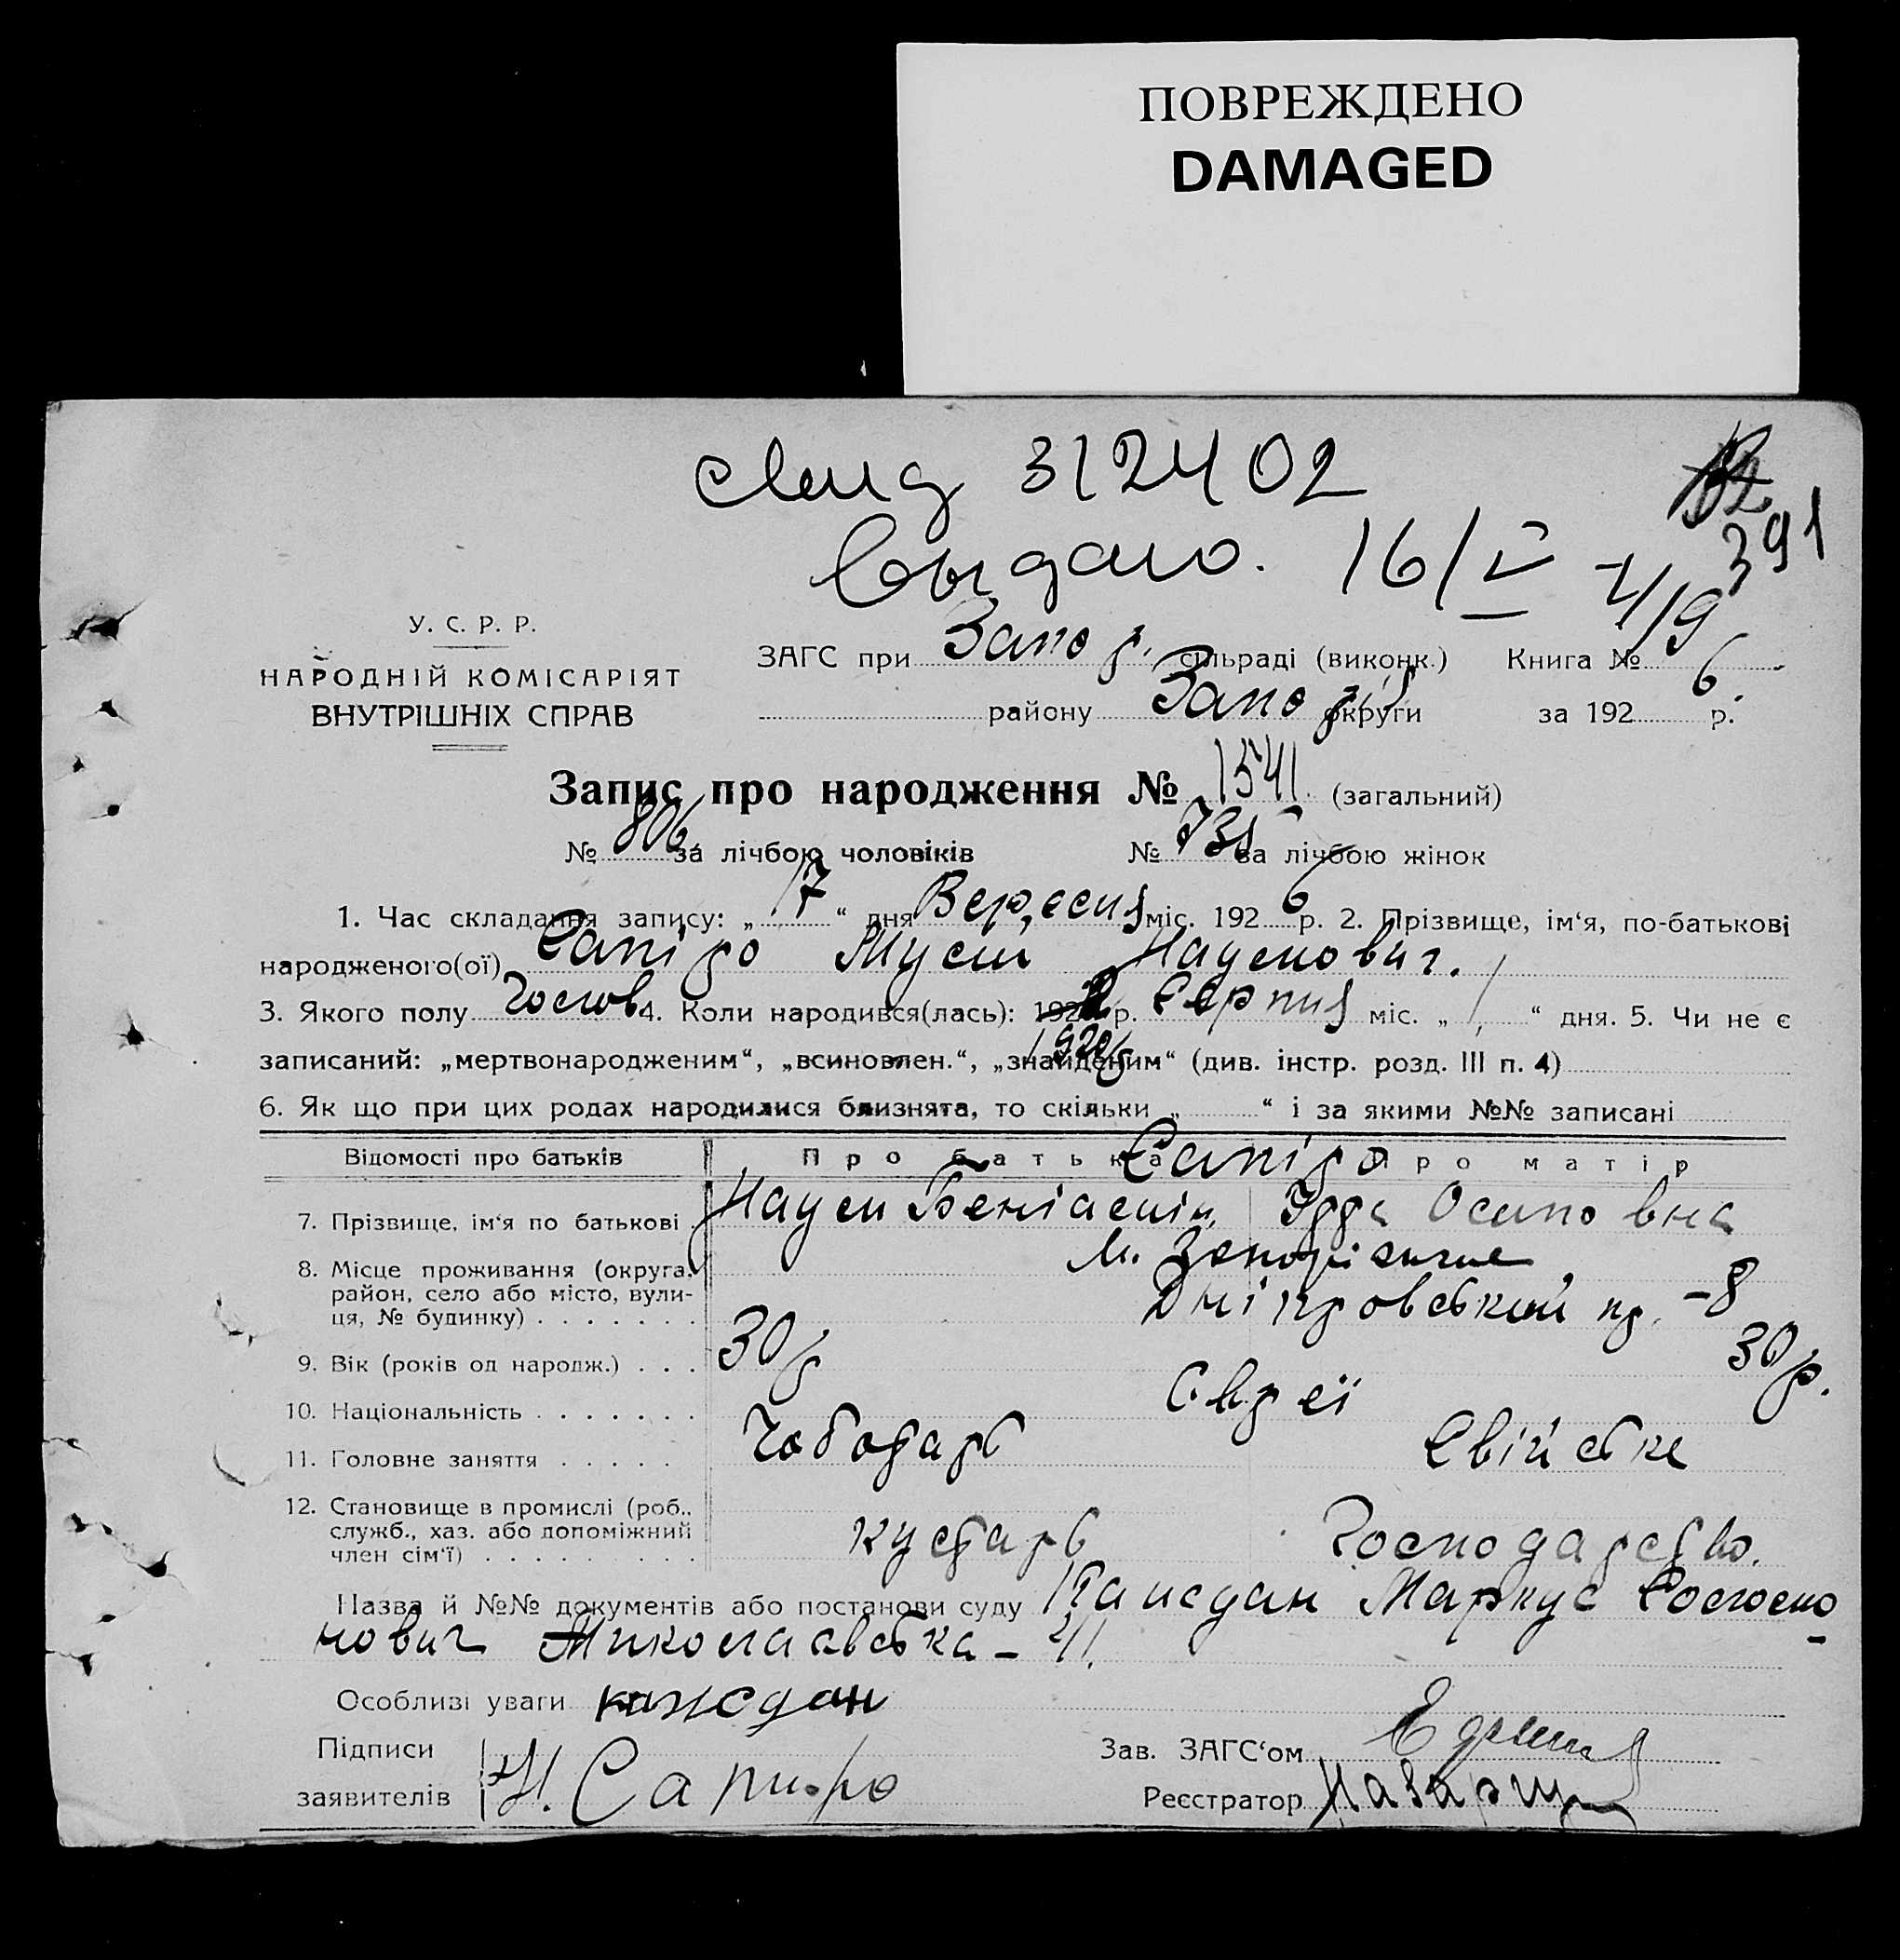 ПОВРЕЖДЕНО
DAMAGED
312402
выдано. 16/V
391
У. С. Р. Р.
НАРОДНІЙ КОМІСАРІЯТ
ВНУТРІШНІХ СПРАВ
ЗАГС при Запор. сільраді (виконк.) Книга №
району Запоріз округи за 1926 р.
Запис про народження № 1541 (загальний)
№ 806 за лічбою чоловіків № 735 за лічбою жінок
1. Час складання запису: „17“ дня Вересня міс. 1926 р. 2. Прізвище, ім‘я, по-батькові
народженого(ої) Сапіро Мусій Наумович.
3. Якого полу Чолов 4. Коли народився(лась): 192 р. Серпня міс. „1“ дня. 5. Чи не є
записаний: „мертвонародженим“, „всиновлен.“, „знайденим“ (див. інстр. розд. III п. 4)
1920
6. Як що при цих родах народилися близнята, то скільки „ “ і за якими №№ записані
Відомості про батьків Про батька Про матір
Сапіро
7. Прізвище, ім‘я по батькові Наум Беніамін. Осиповна
8. Місце проживання (округа, м. Запоріжжя
район, село або місто, вули- Дніпровський пр. -8
ця, № будинку)
9. Вік (років од народж.) 30 р 30 р.
10. Національність Євреї
11. Головне заняття Чоботарь Свійське
12. Становище в промислі (роб.,
служб., хаз. або допоміжний кустарь Господарство.
член сім‘ї)
Назва й №№ документів або постанови суду Каждан Маркус Соломо
нович Миколаївська -
Особливі уваги каждан
Підписи Зав. ЗАГС‘ом
заявителів Н. Сапиро Реєстратор